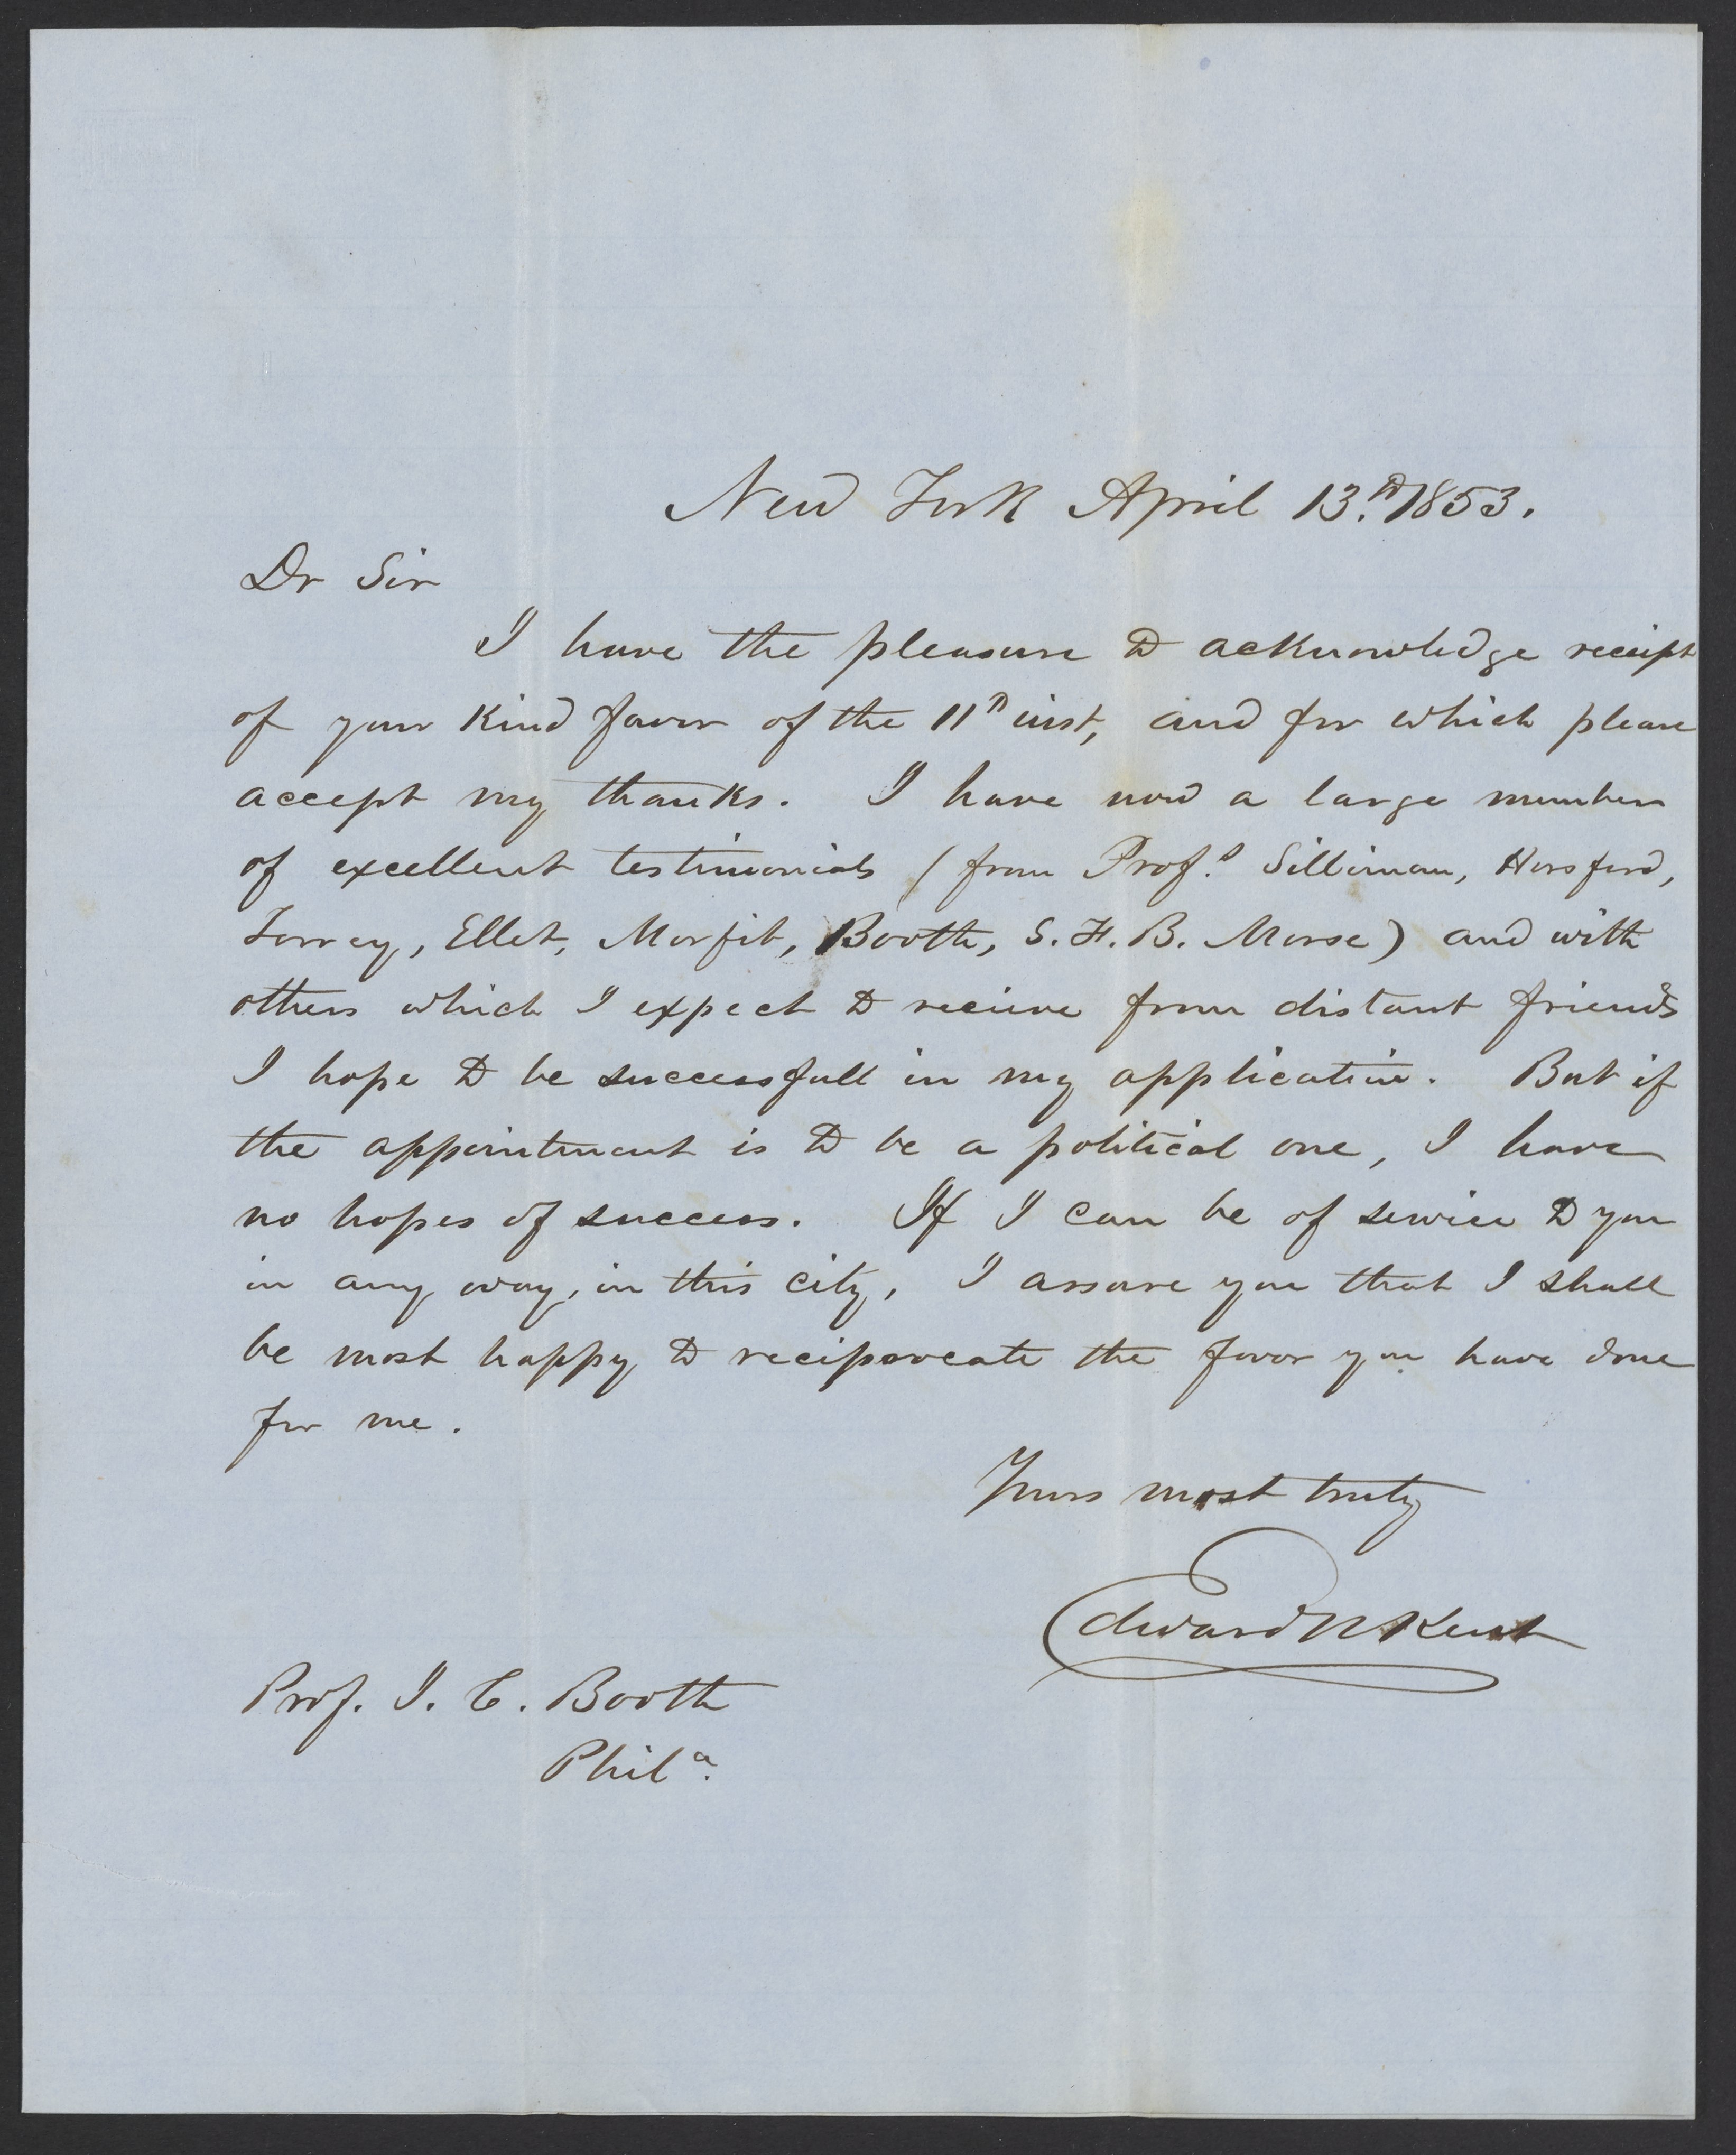 New York April 13th 1853.
Dr Sir
I have the pleasure to acknowledge receipt
of your kind favor of the 11th inst, and for which please
accept my thanks. I have now a large number
of excellent testimonials (from Profs. Silliman, Horsford,
Torrey, Ellet, Morfit, Booth, S. F. B. Morse) and with
others which I expect to recieve from distant friends
I hope to be successfull in my application. But if
the appointment is to be a political one, I have
no hopes of success. If I can be of service to you
in any way, in this city, I assure you that I shall
be most happy to reciprocate the favor you have done
for me.
Yours most truly
Edward N Kent
Prof. J. C. Booth
Phila.